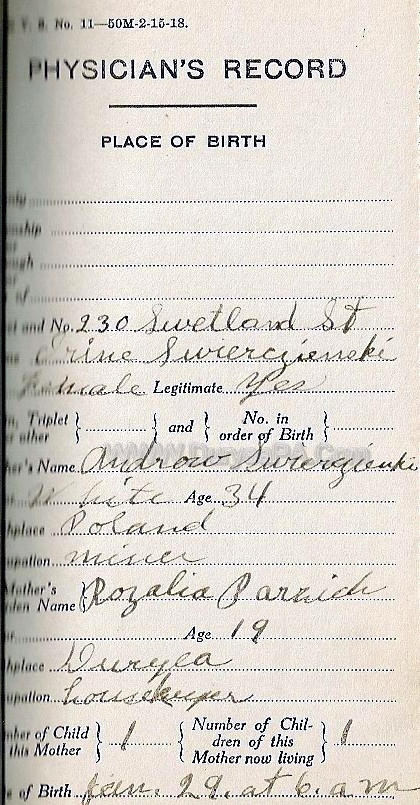 V. S. No. 11—50M-2-15-18.
PHYSICIAN'S RECORD
PLACE OF BIRTH
nship
or
ugh
or
of
et and No. 230 Swetland St
Swierczienski
Female Legitimate Yes
n, Triplet
or other } and { No. in
order of Birth }
her's Name Androw Swierczienski
White Age 34
hplace Poland
upation miner
Mother's
den Name } Rozalia
Age 19
hplace Duryea
upation housekeeper
mber of Child
this Mother } 1 { Number of Chil-
dren of this
Mother now living } 1
e of Birth Jan. 29. at 6. a m